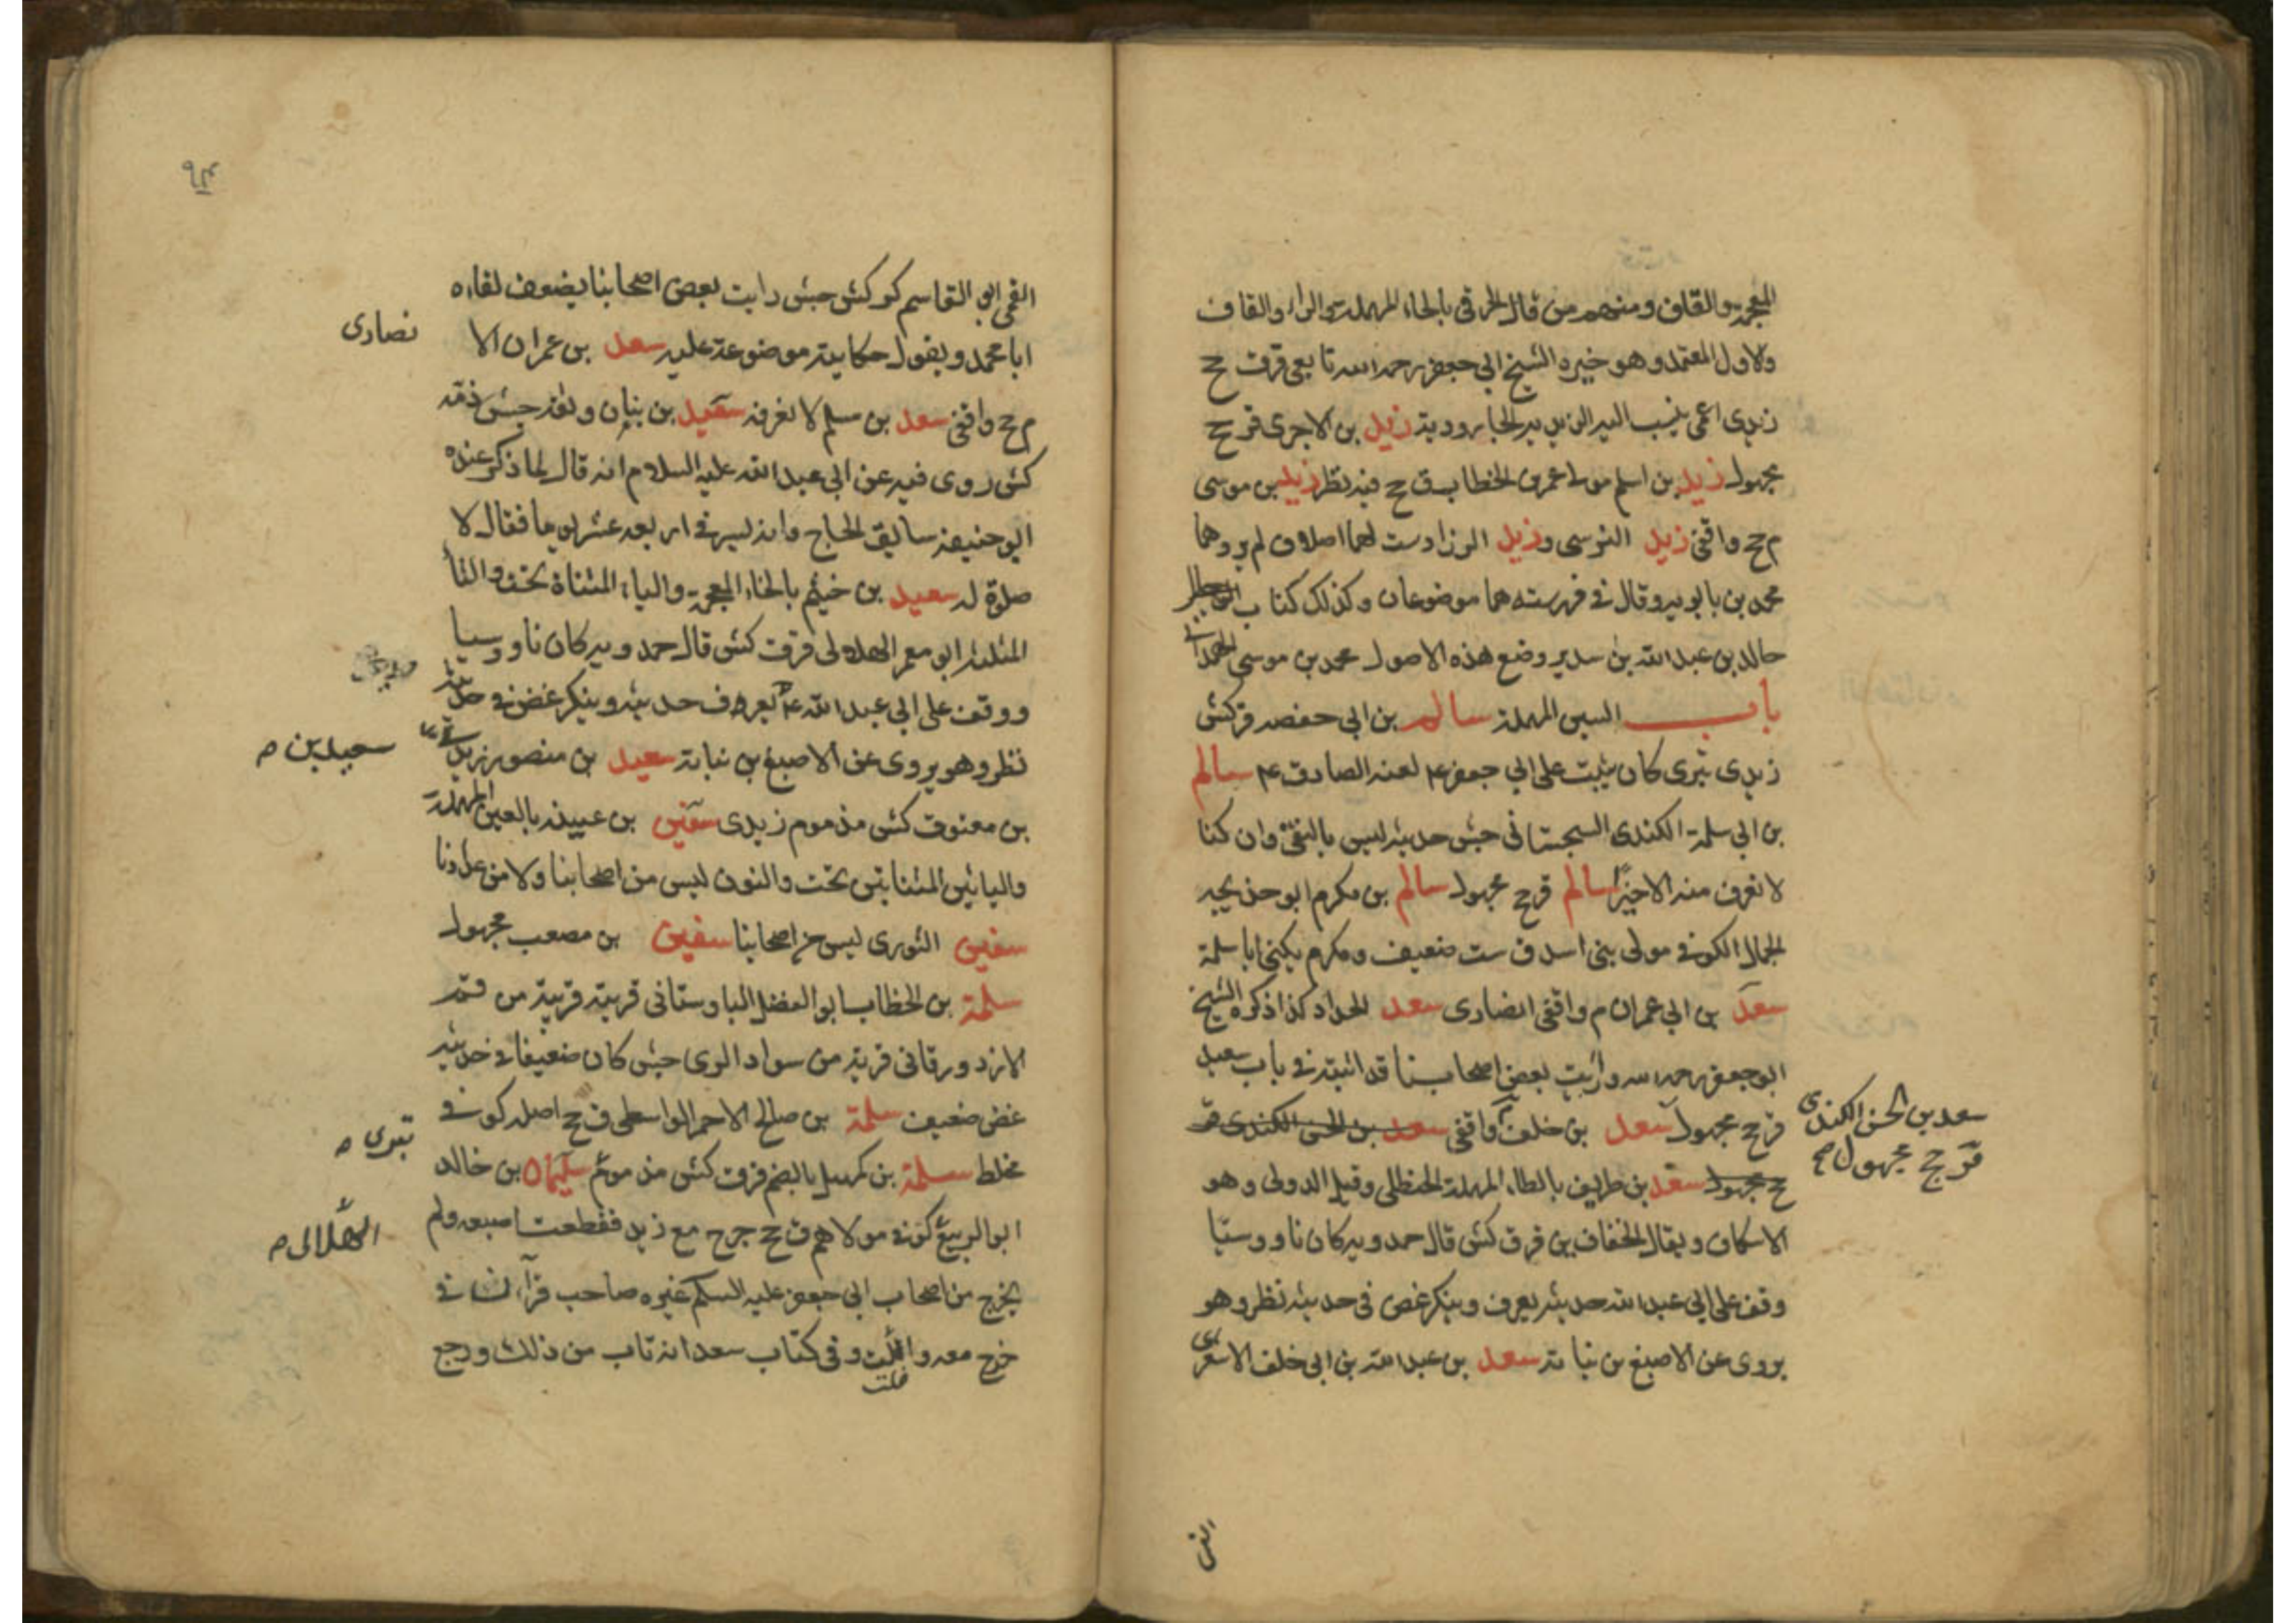 المعجمة والقاف ومنهم من قال الحرقي بالحاء المهملة والراء والقاف
والاول المعتمد وهو خيره الشيخ ابي جعفر رحمه الله تابعي قر ق ج
زيدي اعمى ينسب اليه الزيدية الجارودية زيد بن الاجري قر ج
مجهول زيد بن اسلم مولى عمر بن الخطاب ق ج فيه نظر زيد بن موسى
م ج واقفي زيد النرسي وزيد الزراد ست لهما اصلان لم يروهما
محمد بن بابويه وقال في فهرسته هما موضوعان وكذلك كتاب
خالد بن عبد الله بن سدير وضع هذه الاصول محمد بن موسى الهمداني
باب السين المهملة سالم بن ابي حفصه قر كش
زيدي بتري كان يثبت على ابي جعفر ع لعنه الصادق ع سالم
بن ابي سلمة الكندي السجستاني جش حديثه ليس بالنقي وان كنا
لا نعرف منه الا خيرا سالم قر ج مجهول سالم بن مكرم ابو خديجه
الجمال الكوفي مولى بني اسد ق ست ضعيف ومكرم يكنى ابا سلمة
سعد بن ابي عمران م واقفي انصاري سعد الحداد كذا ذكره الشيخ
ابو جعفر رحمه الله ورايت بعض اصحابنا قد اثبته في باب سعيد
قر ج مجهول سعد بن خلف واقفي سعد بن الحسن الكندي قر
سعد بن الحسن الكندي
قر ج مجهول صح
ج مجهول سعد بن طريف بالطاء المهملة الحنظلي وقيل الدولي وهو
الاسكاف ويقال الخفاف ين قر ق كش قال حمدويه كان ناووسيا
وقف على ابي عبد الله حديثه يعرف وينكر غض في حديثه نظر وهو
يروي عن الاصبغ بن نباتة سعد بن عبد الله بن ابي خلف الاشعري
القمي
القمي ابو القاسم كر كش جش رايت بعض اصحابنا يضعف لقاءه
ابا محمد ويقول حكاية موضوعة عليه سعد بن عمران الا
نصاري
م ج واقفي سعد بن مسلم لا نعرفه سعيد بن بنان وثقه جش ذمه
كش روى فيه عن ابي عبد الله عليه السلام انه قال لما ذكر عنده
ابو حنيفة سايق الحاج وانه ليسر في اربعة عشر يوما فقال لا
صلوة له سعيد بن خيثم بالخاء المعجمة والياء المثناة تحت والثاء
المثلثة ابو معمر الهلالي قر ق كش قال حمدويه كان ناووسيا
ووقف على ابي عبد الله ع يعرف حديثه وينكر غض في حديثه
نظر وهو يروي عن الاصبغ بن نباتة سعيد بن منصور زيدي
سعيد بن ص
بن معتوق كش مذموم زيدي سفين بن عيينه بالعين المهملة
واليائين المثناتين تحت والنون ليس من اصحابنا ولا من عدادنا
سفين الثوري ليس من اصحابنا سفين بن مصعب مجهول
سلمة بن الخطاب ابو الفضل البراوستاني قرية قريبة من قم
الازدورقاني قرية من سواد الري جش كان ضعيفا في حديثه
غض ضعيف سلمة بن صالح الاحمر الواسطي ق ج اصله كوفي
مخلط سلمة بن كهيل بالضم قر ق كش مذموم سليمان بن خالد
بتري ص
ابو الربيع كوفي مولاهم ق ج خرج مع زيد فقطعت اصبعه ولم
الهلالي ص
يخرج من اصحاب ابي جعفر عليه السلم غيره صاحب قرآن مات في
خرج معه وافلت وفي كتاب سعد انه تاب من ذلك ورجع
فلت